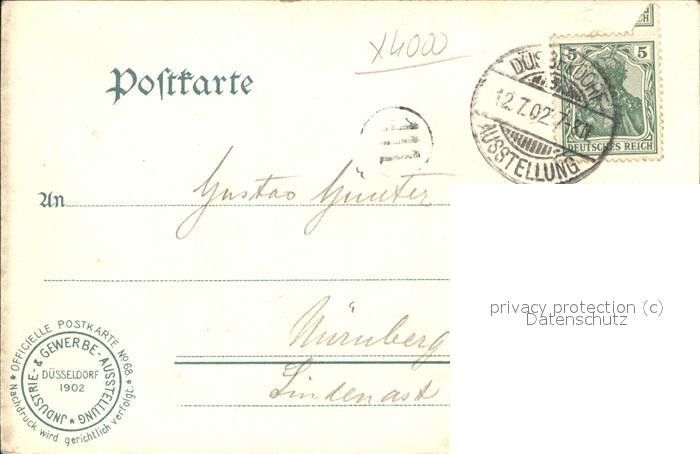 x4000
Postkarte
5 5
DEUTSCHES REICH
DÜSSELDORF
12.7.02.7-8N.
AUSSTELLUNG
111
An Gustav Günter
privacy protection (c)
Datenschutz
Nürnberg
Lindenast
OFFICIELLE POSTKARTE No 68.
JNDUSTRIE- & GEWERBE-AUSSTELLUNG
DÜSSELDORF
1902
Nachdruck wird gerichtlich verfolgt.